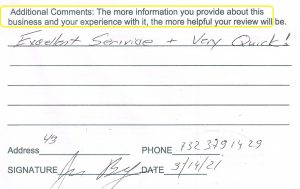 Additional Comments: The more information you provide about this
business and your experience with it, the more helpful your review will be.
Excellent Serivice + Very Quick!
Address 43 PHONE 732 379 1429
SIGNATURE DATE 3/14/21